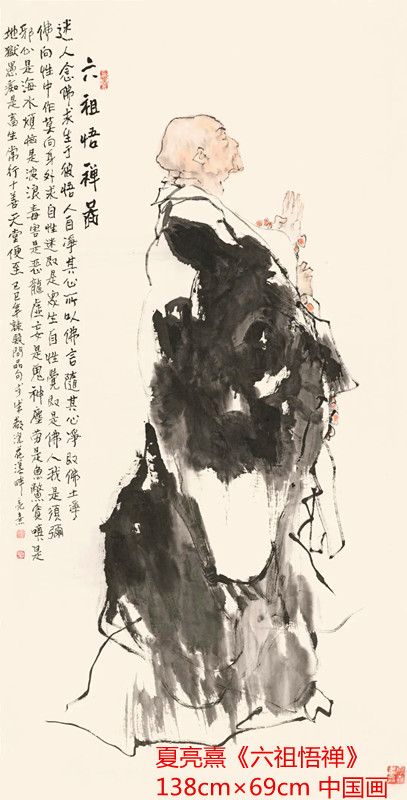 六祖悟禅啚
迷人念佛求生于彼悟人自淨其心所以佛言隨其心淨即佛土淨
佛向性中作莫向身外求自性迷即是衆生自性覺即是佛人我是須彌
邪心是海水煩惱是波浪毒害是恶龍虚妄是鬼神塵劳是魚鱉貪嗔是
地獄愚痴是畜生常行十善天堂便至
成都浣花溪畔亮熹
夏亮熹《六祖悟禅》
138cm×69cm 中国画